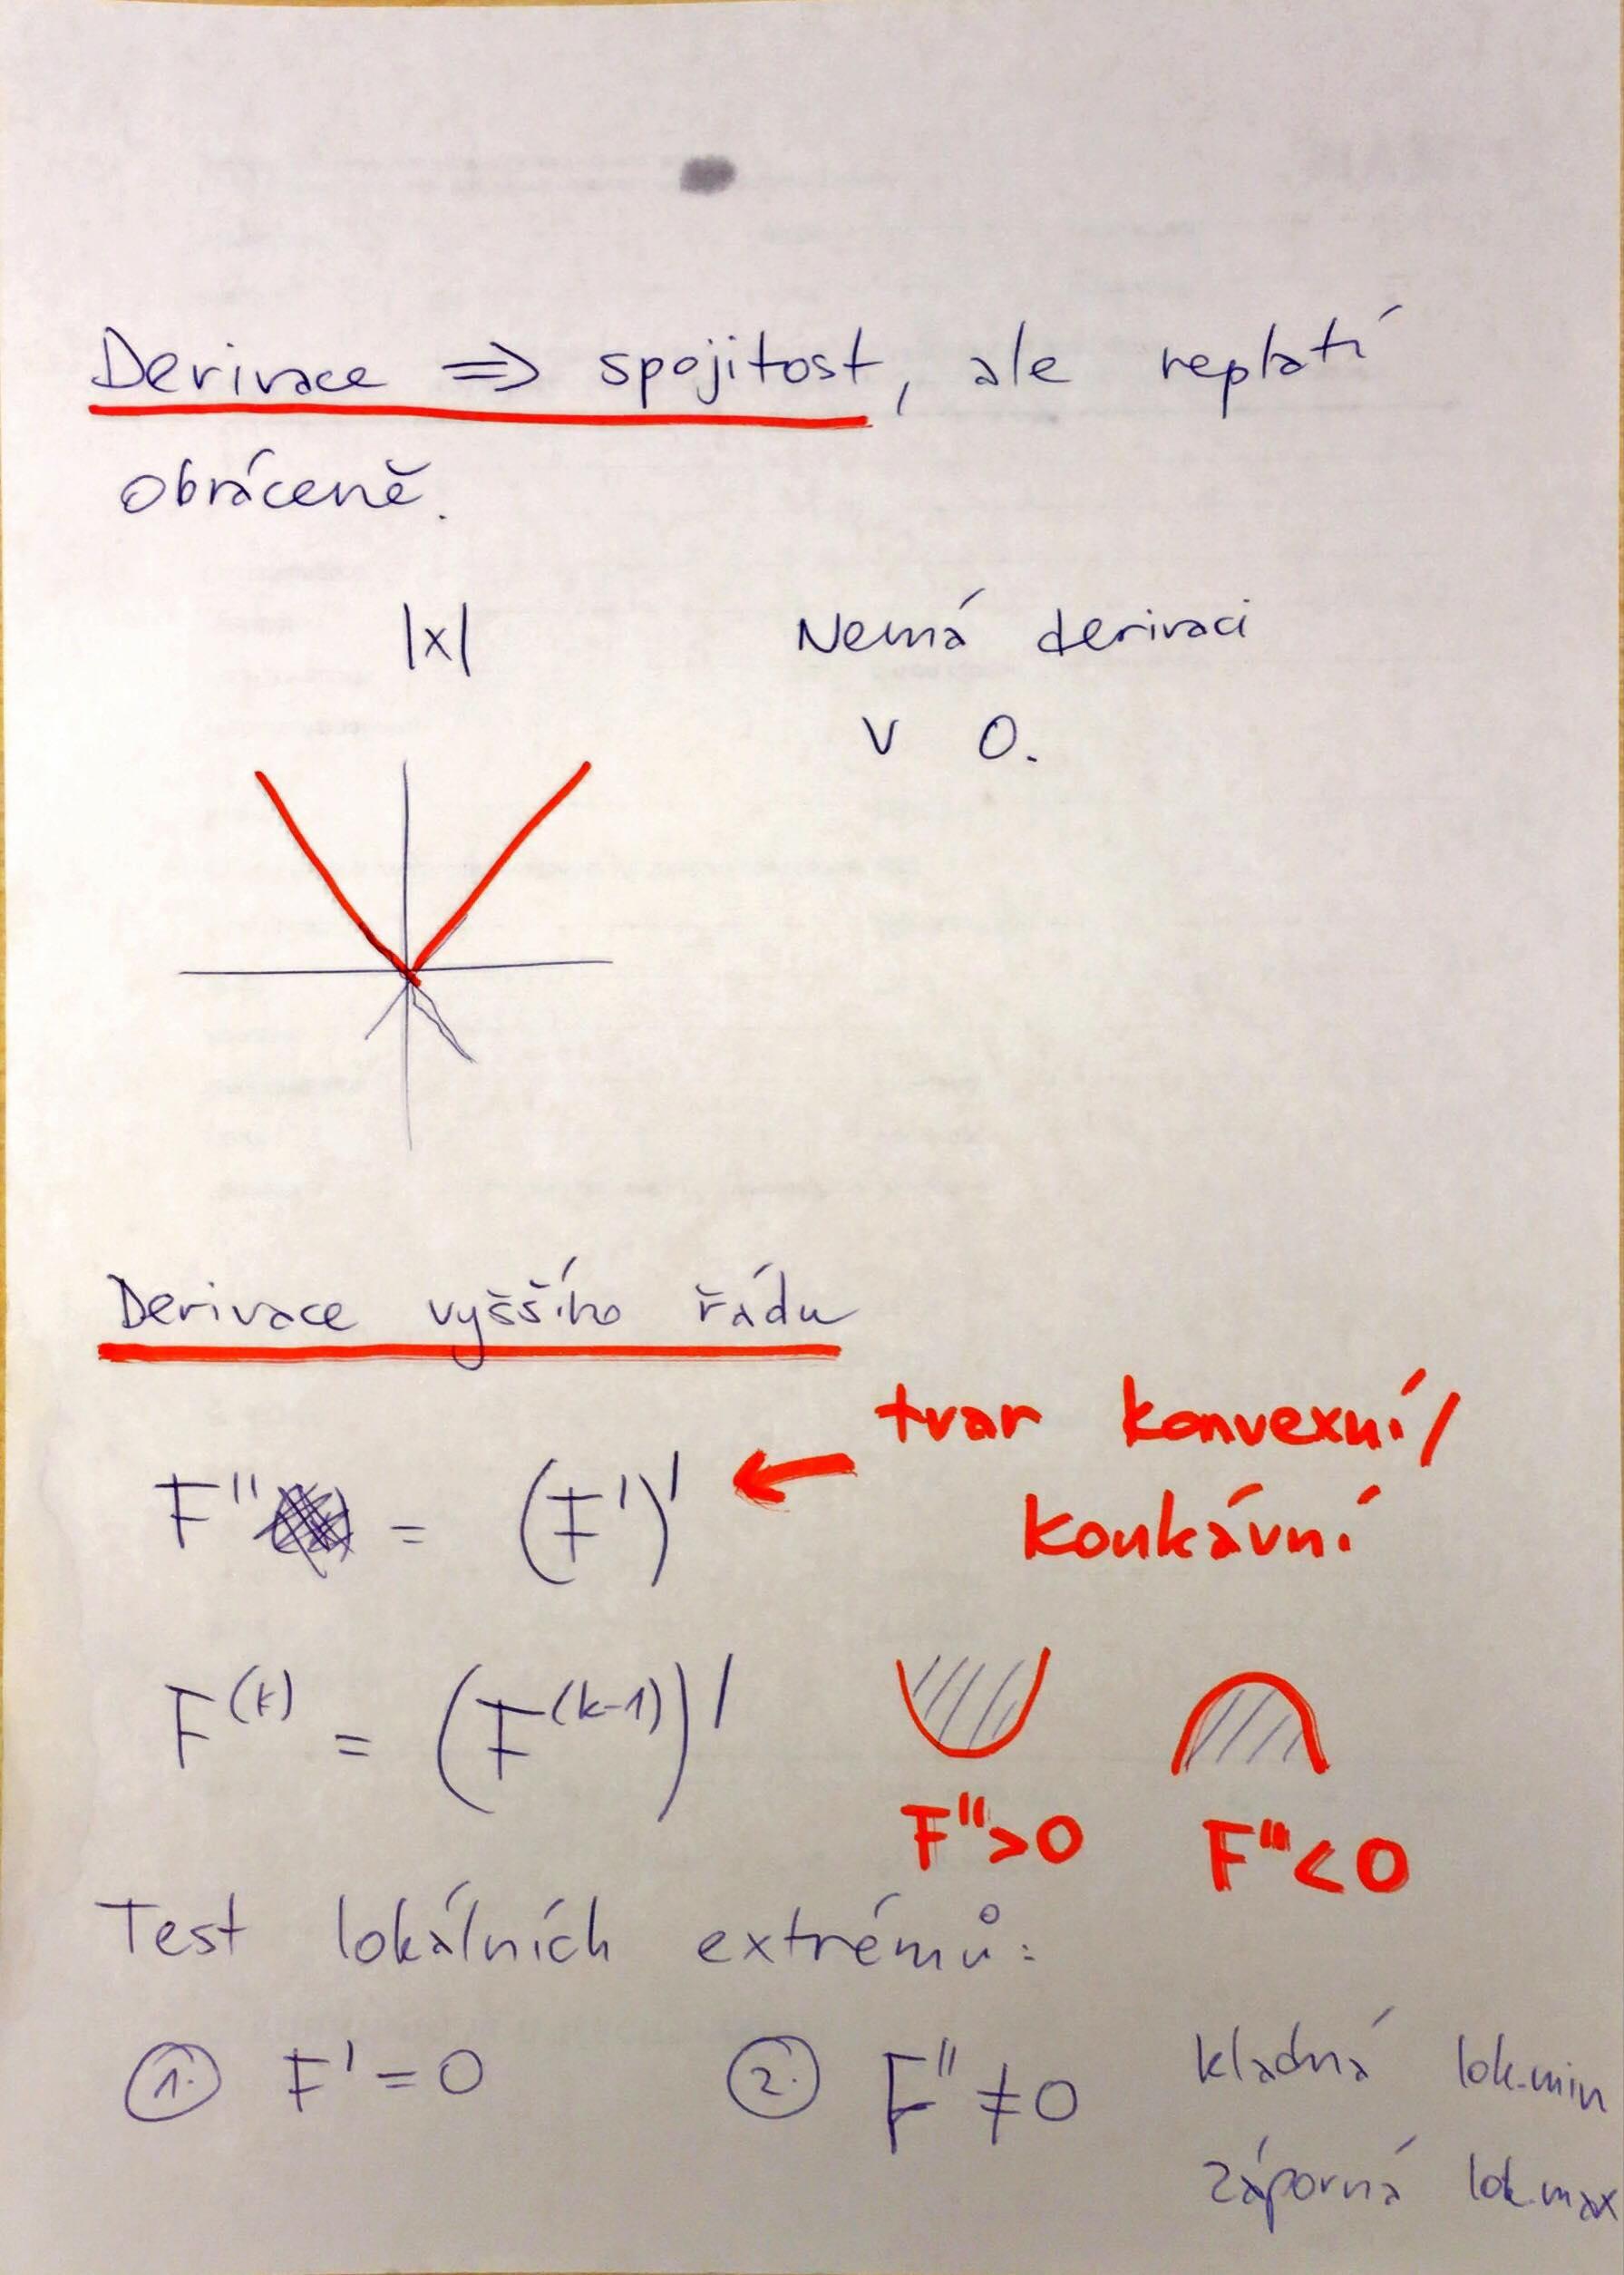 Derivace ⇒ spojitost, ale neplatí
obráceně.
|x|
Nemá derivaci
v 0.
Derivace vyššího řádu
tvar konvexní/
konkávní
F'' = (F')'
F^(k) = (F^(k-1))'
F''>0
F''<0
Test lokálních extrémů:
1. F' = 0
2. F'' ≠ 0
kladná lok.min
záporná lok.max